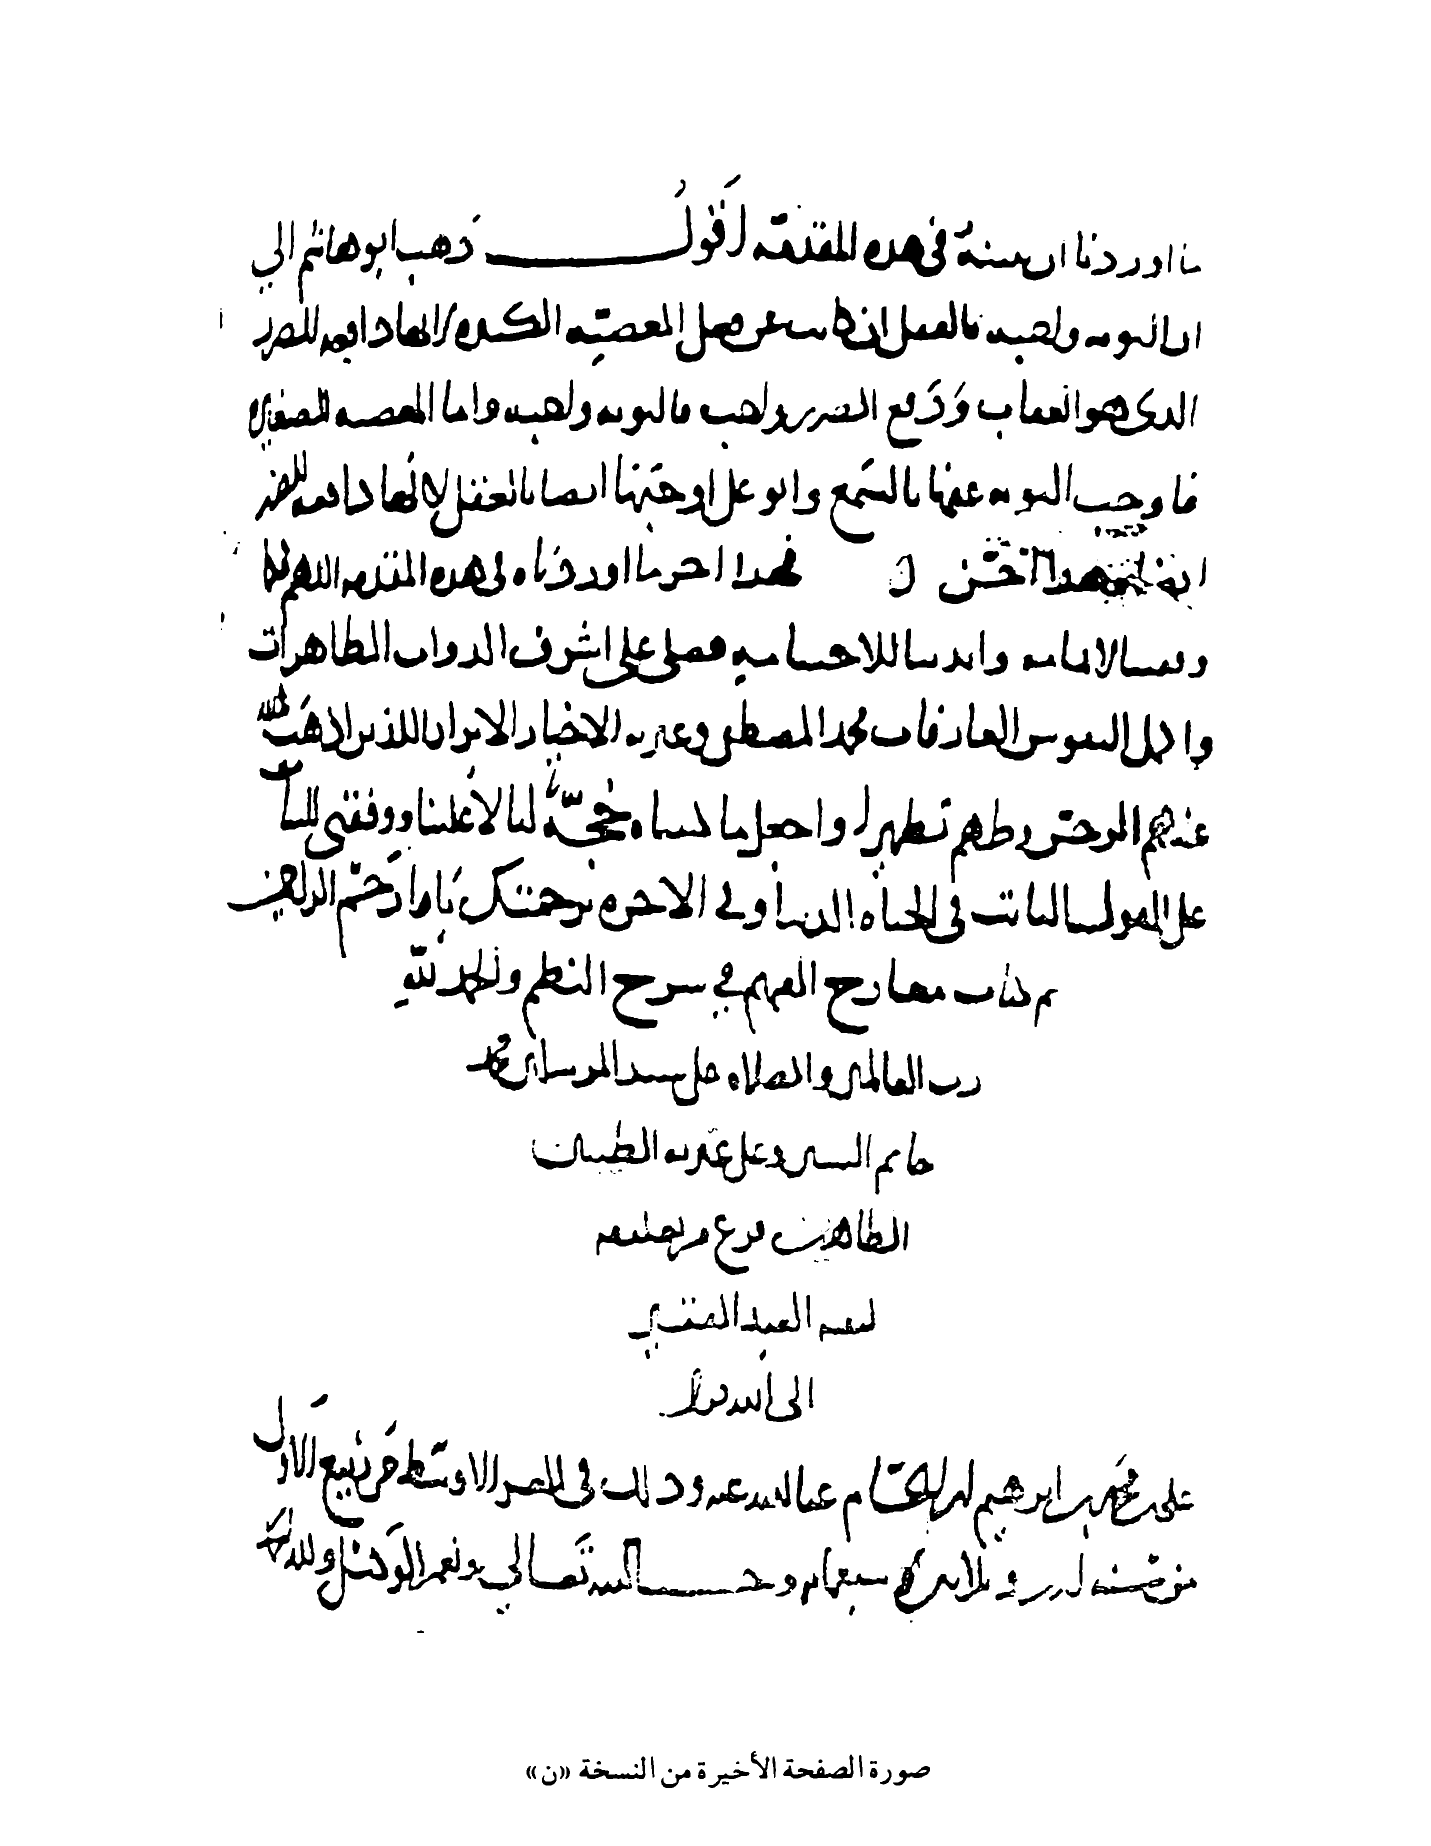 ما اوردنا ان نبينه في هذه المقدمة اقول ذهب ابو هاشم الي
ان التوبه واجبه بالعقل ان كانت عن فعل المعصيه الكبيره لانها دافعه للضرر
الذي هو العقاب ودفع الضرر واجب فالتوبه واجبه واما المعصيه الصغيره
فاوجب التوبه عنها بالسمع وابو علي اوجبها ايضا بالعقل لانها دافعه للضرر
فهذا اخر ما اوردناه في هذه المقدمه اللهم كما
وفقتنا لاتمامه وايدتنا للاختتام به فصل على اشرف الذوات الطاهرات
واكمل النفوس العارفات محمد المصطفى وعترته الاخيار الابرار اللذين اذهبت
عنهم الرجس وطهرهم تطهيرا واجعل ما كتبناه حجة لنا لا علينا ووفقني للثبات
على القول الثابت في الحياه الدنيا وفي الاخره برحمتك يا ارحم الراحمين
تم كتاب معارج الفهم في شرح النظم والحمد لله
رب العالمين والصلاه على سيد المرسلين محمد
خاتم النبيين وعلى عترته الطيبين
الطاهرين فرغ من تعليقه
لنفسه العبد الفقير
الى الله تعالى
على بن محمد بن ابرهيم عفا الله عنه وذلك في العشر الاوسط من ربيع الاول
من سنه سبعمايه وحسبنا الله تعالي ونعم الوكيل ولله الحمد
صورة الصفحة الأخيرة من النسخة «ن»